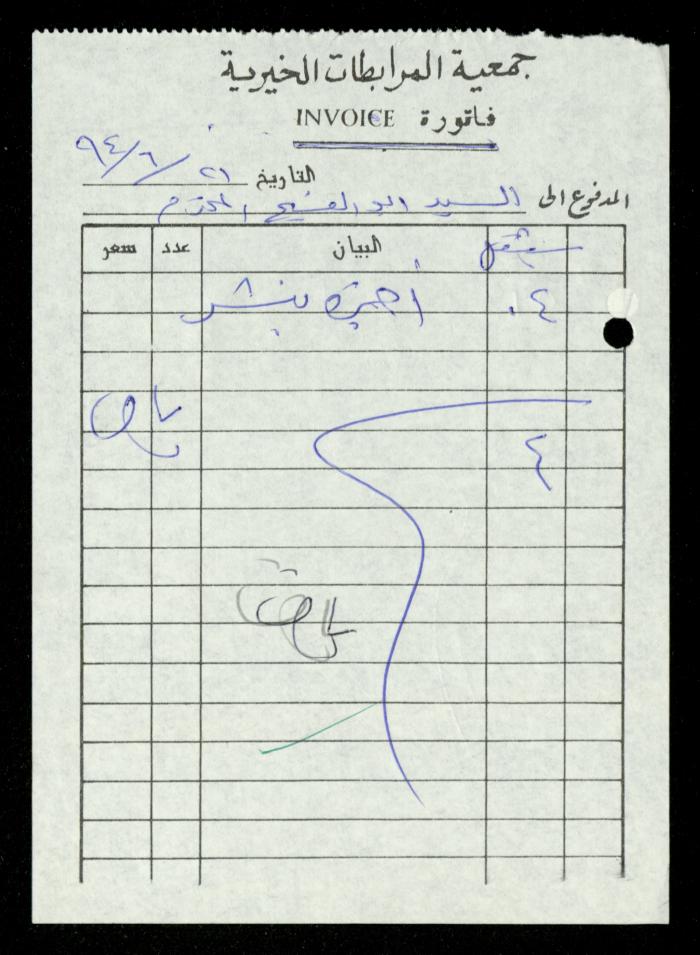 جمعية المرابطات الخيرية
فاتورة INVOICE
التاريخ ٢١/٦/٩٤
المدفوع الى السيد ابو الفتح المحترم
البيان عدد سعر
٤٠ أجرة بنشر
٤